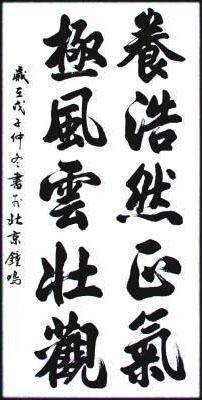 養浩然正氣
極風雲壯觀
歲在戊子仲冬書於北京鐘鳴